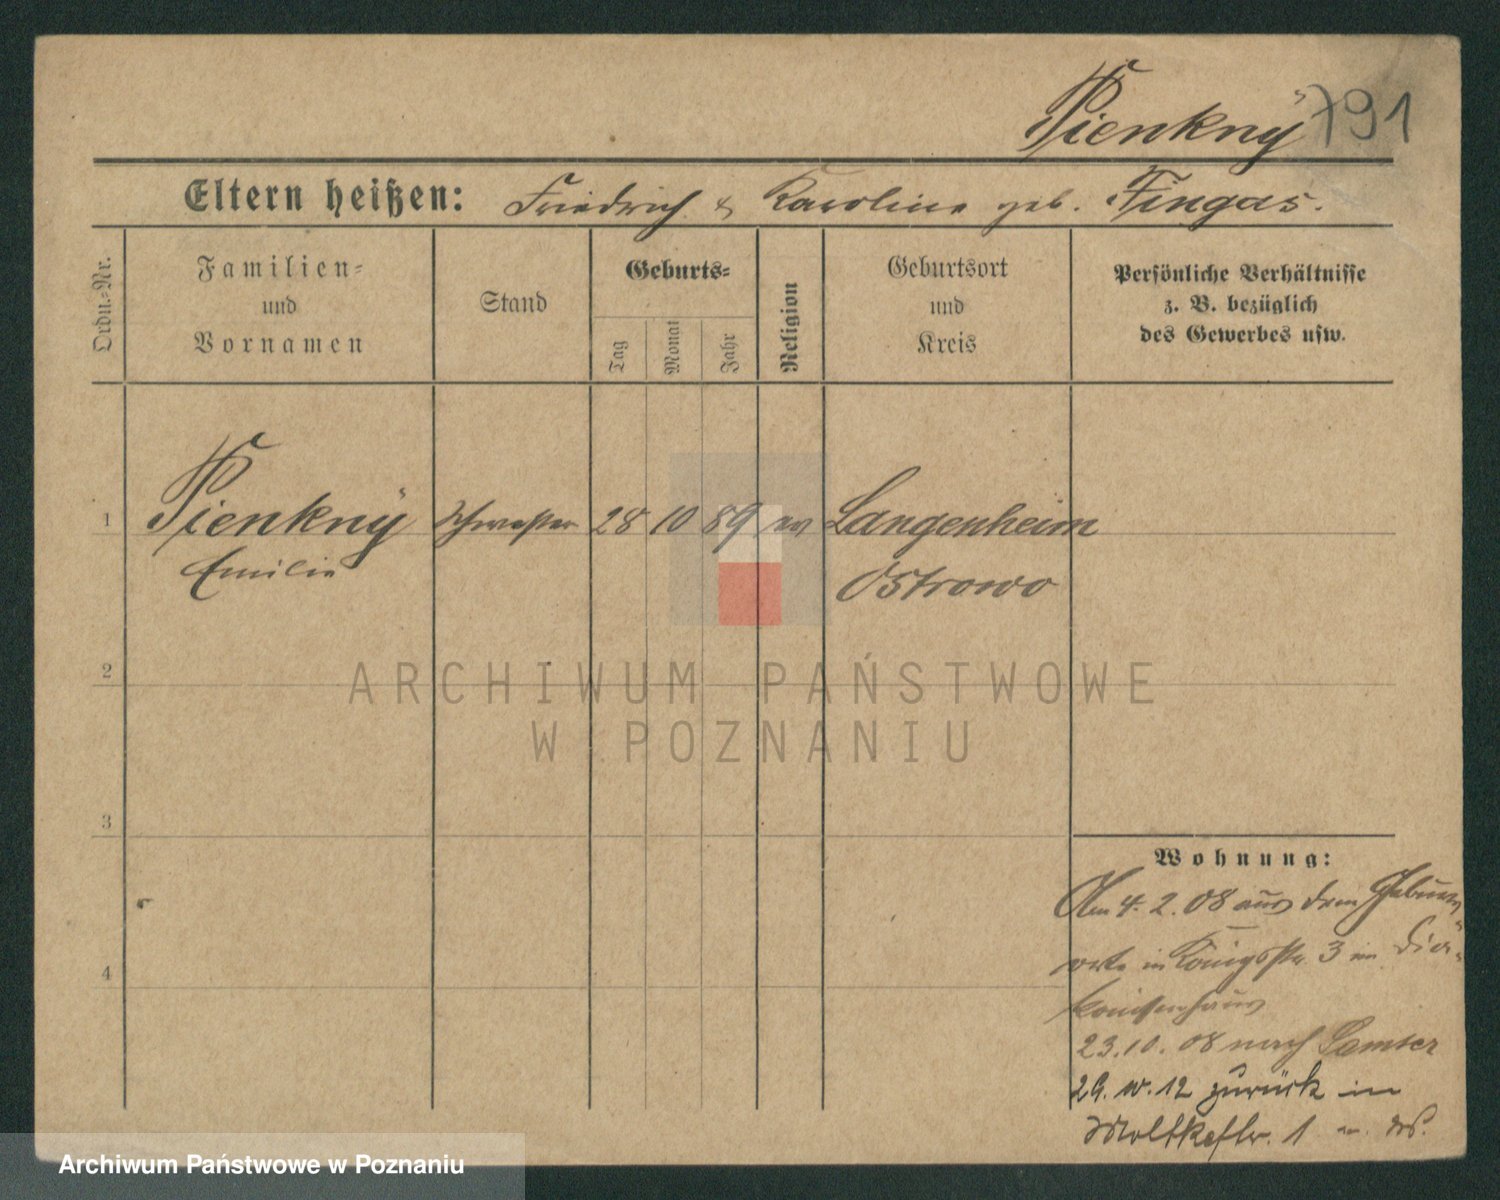 Pienkny 791
Eltern heißen: Friedrich & Karoline geb. Fingas.
Ordn.=Nr.
Familien=
und
Vornamen
Stand
Geburts=
Tag
Monat
Jahr
Religion
Geburtsort
und
Kreis
Persönliche Verhältnisse
z. B. bezüglich
des Gewerbes usw.
1 Pienkny Schwester 28 10 89 ev Langenheim
Emilie Ostrowo
2
3
4
Wohnung:
Am 4. 2. 08 aus dem Geburts-
orte in Königsstr. 3 im Dia-
konissenhaus
23.10. 08 nach Samter
29. 12 zurück in
Moltkestr. 1
ARCHIWUM PAŃSTWOWE
W POZNANIU
Archiwum Państwowe w Poznaniu